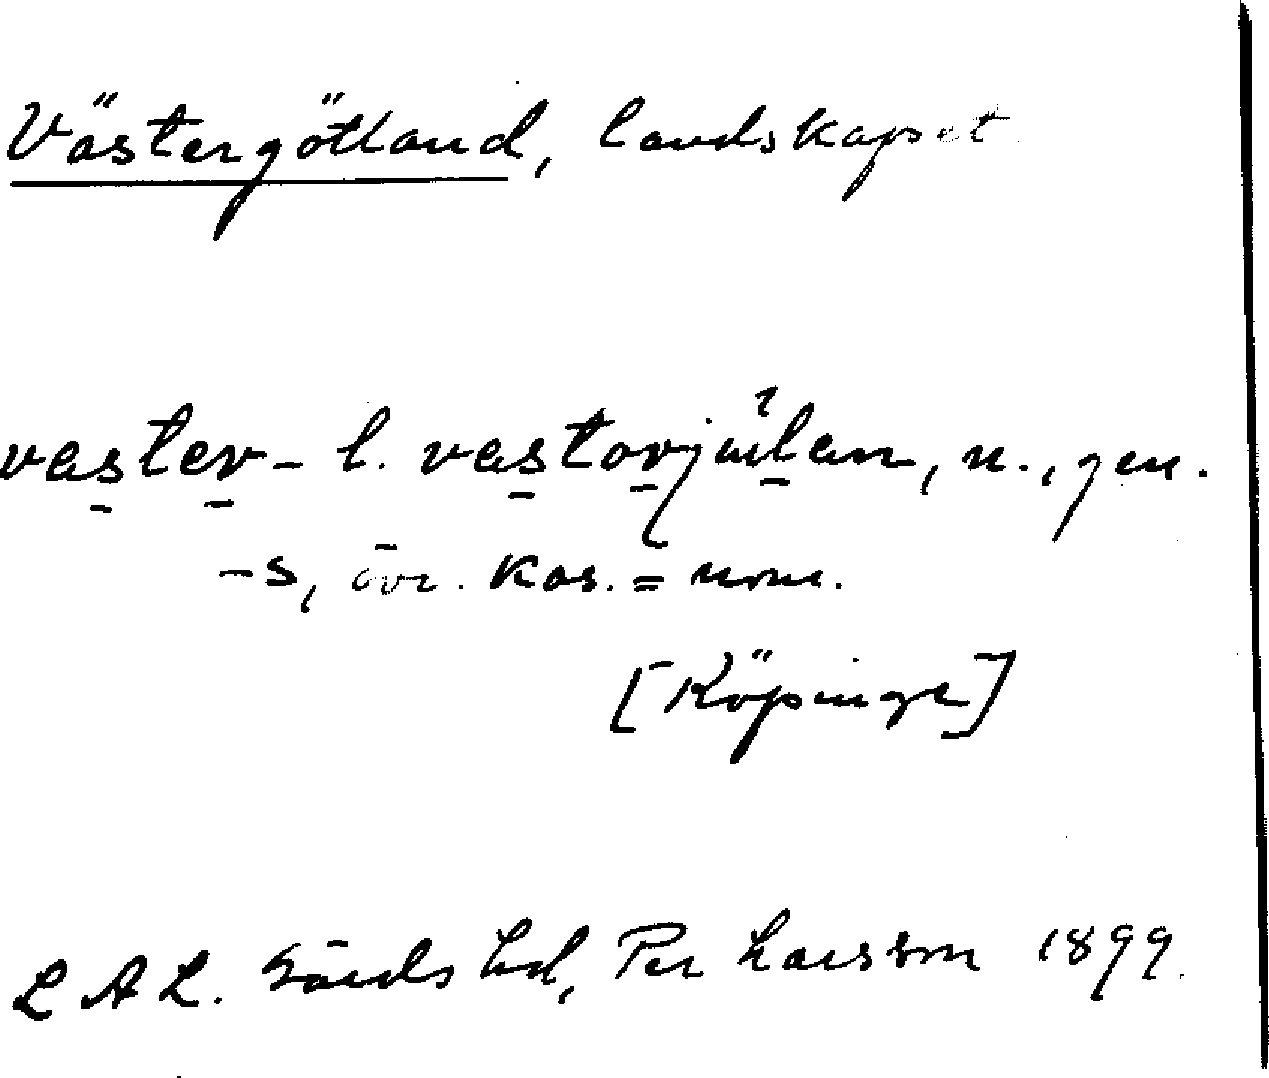 Västergötland, landskapet
vaster- l. vastorjøtlan, n., gen.
-s, övr. kas. = nom.
[Köpinge]
L A L. Sönds hd, Per Larsson 1899.